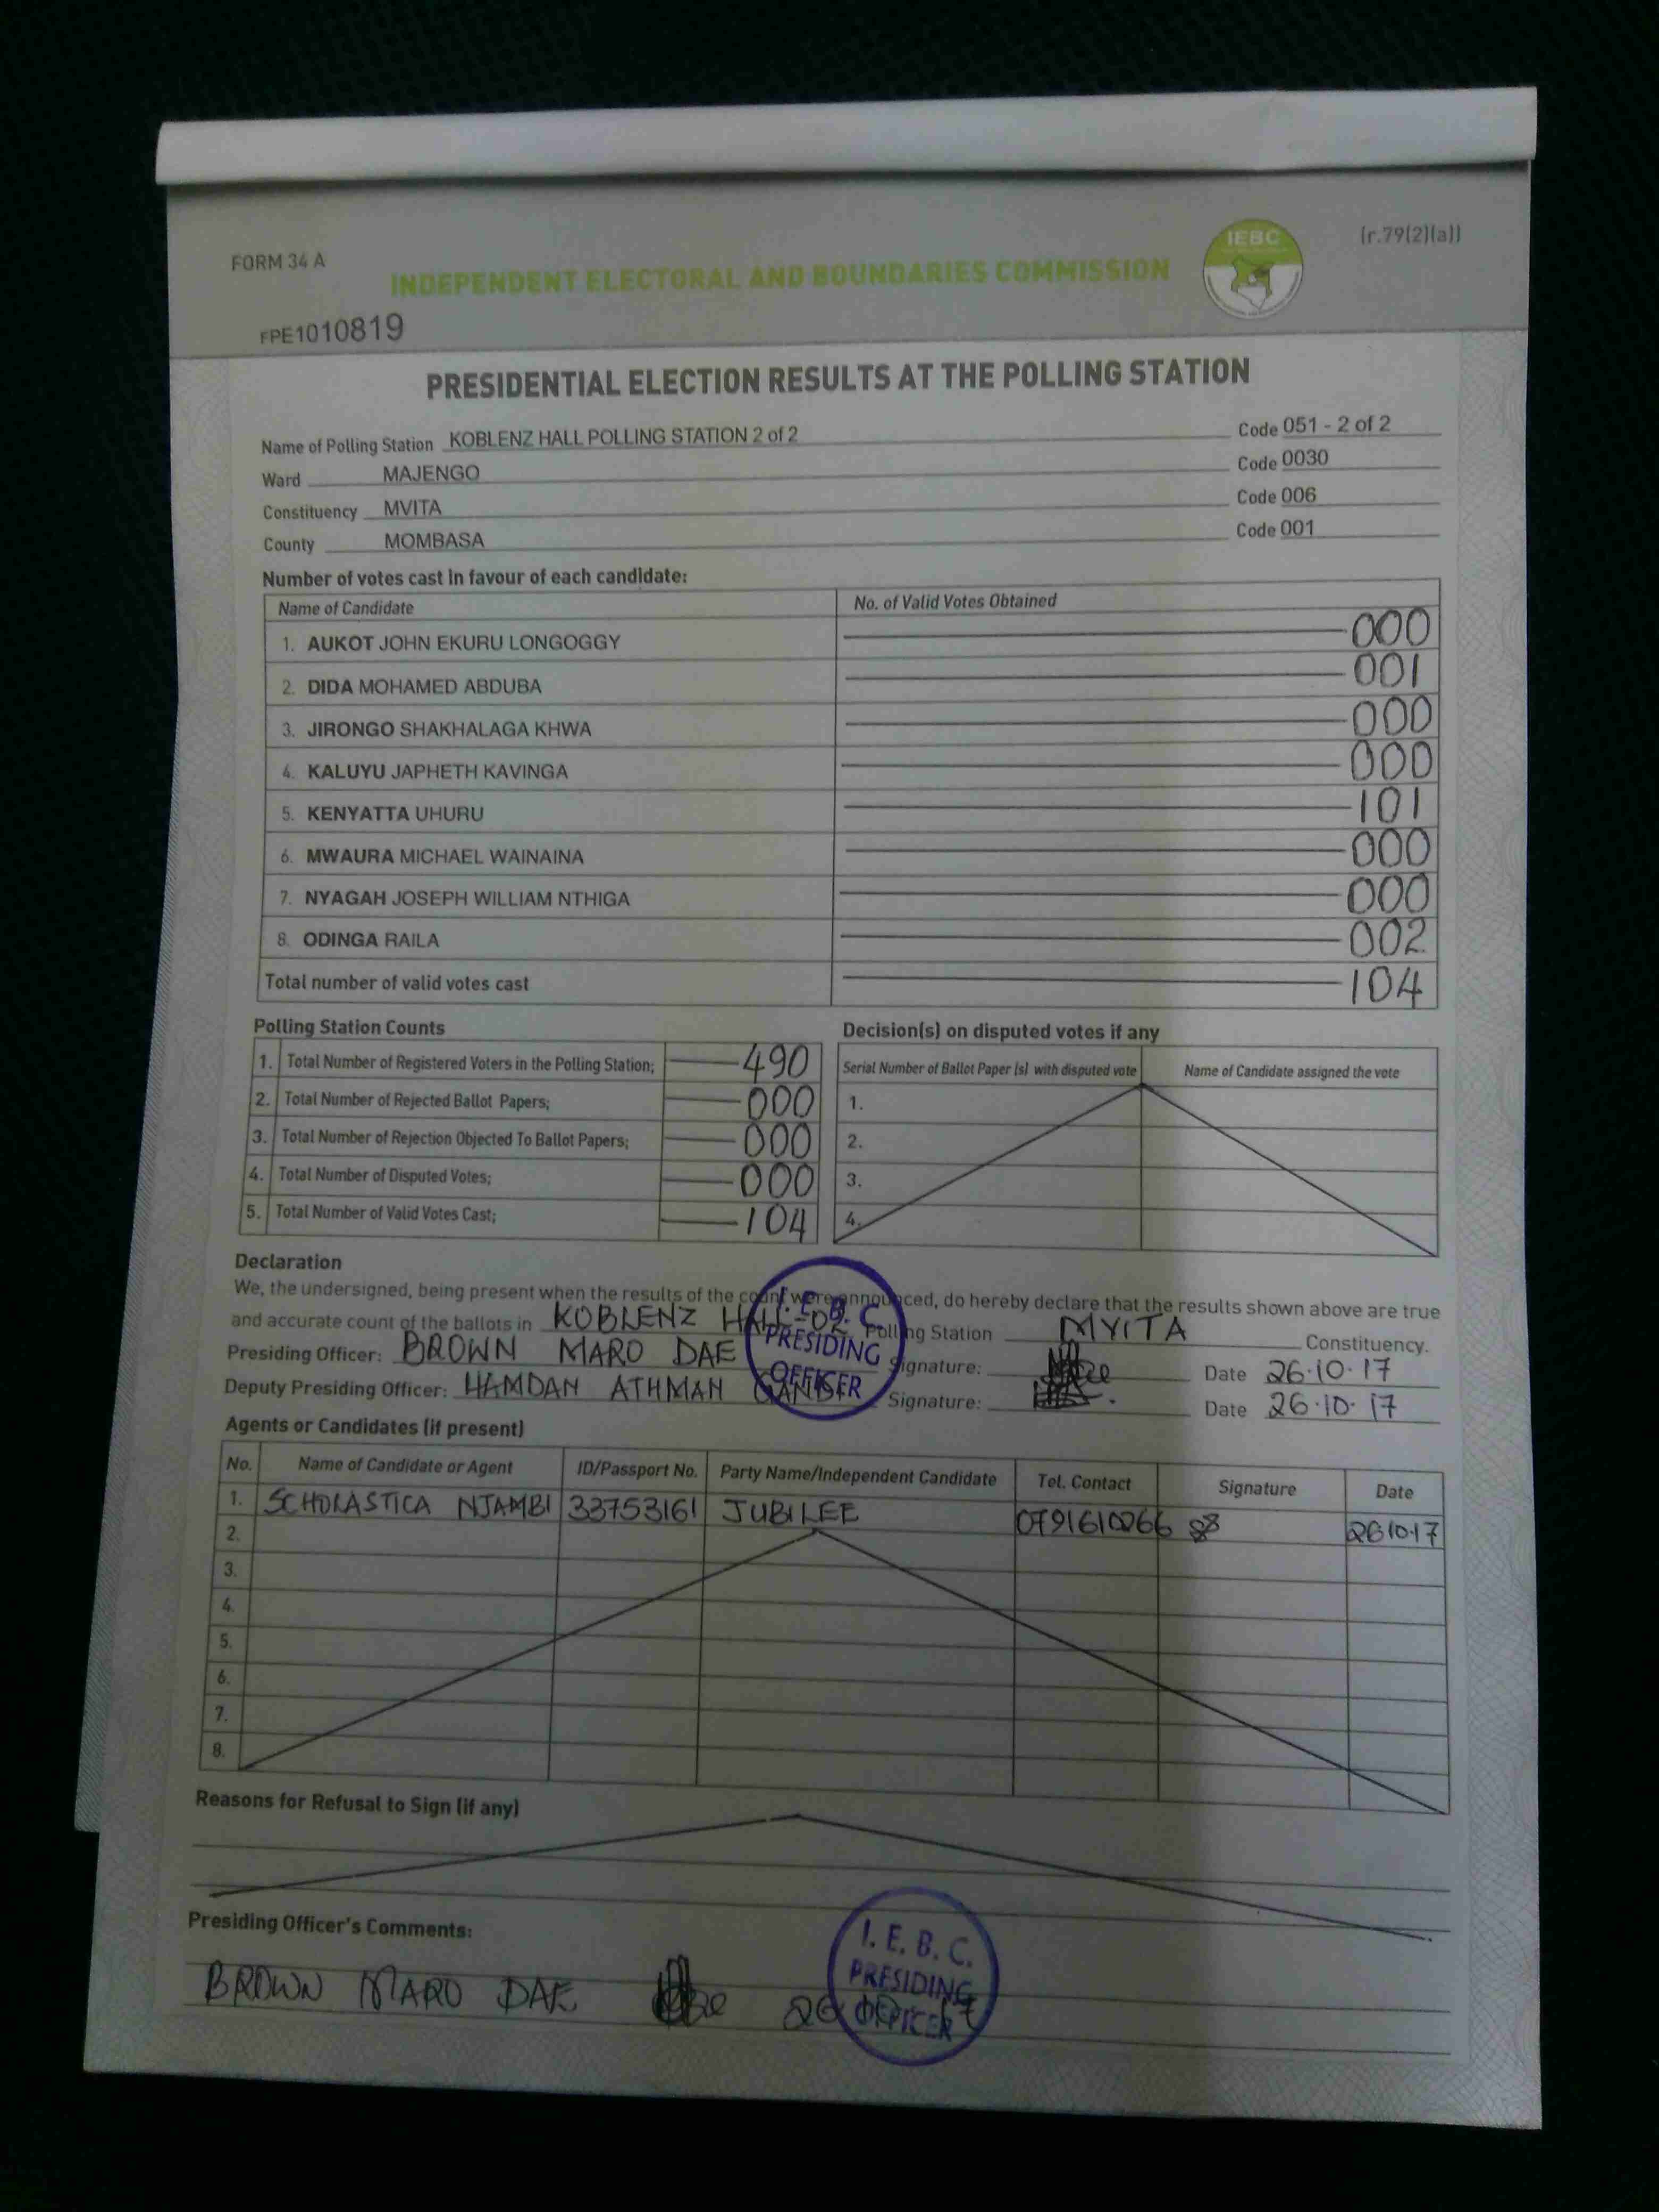 FORM 34 A
(r.79(2)(a))
IEBC
INDEPENDENT ELECTORAL AND BOUNDARIES COMMISSION
FPE1010819
PRESIDENTIAL ELECTION RESULTS AT THE POLLING STATION
Name of Polling Station KOBLENZ HALL POLLING STATION 2 of 2 Code 051 - 2 of 2
Ward MAJENGO Code 0030
Constituency MVITA Code 006
County MOMBASA Code 001
Number of votes cast in favour of each candidate:
Name of Candidate No. of Valid Votes Obtained
1. AUKOT JOHN EKURU LONGOGGY 000
2. DIDA MOHAMED ABDUBA 001
3. JIRONGO SHAKHALAGA KHWA 000
4. KALUYU JAPHETH KAVINGA 000
5. KENYATTA UHURU 101
6. MWAURA MICHAEL WAINAINA 000
7. NYAGAH JOSEPH WILLIAM NTHIGA 000
8. ODINGA RAILA 002
Total number of valid votes cast 104
Polling Station Counts
1. Total Number of Registered Voters in the Polling Station; 490
2. Total Number of Rejected Ballot Papers; 000
3. Total Number of Rejection Objected To Ballot Papers; 000
4. Total Number of Disputed Votes; 000
5. Total Number of Valid Votes Cast; 104
Decision(s) on disputed votes if any
Serial Number of Ballot Paper (s) with disputed vote Name of Candidate assigned the vote
1.
2.
3.
4.
Declaration
We, the undersigned, being present when the results of the count were announced, do hereby declare that the results shown above are true
and accurate count of the ballots in KOBLENZ HALL-02 Polling Station MVITA Constituency.
Presiding Officer: BROWN MARO DAE Signature: Date 26.10.17
Deputy Presiding Officer: HAMDAN ATHMAN Signature: Date 26.10.17
I. E. B. C.
PRESIDING
OFFICER
Agents or Candidates (if present)
No. Name of Candidate or Agent ID/Passport No. Party Name/Independent Candidate Tel. Contact Signature Date
1. SCHOLASTICA NJAMBI 33753161 JUBILEE 0791610266 26.10.17
2.
3.
4.
5.
6.
7.
8.
Reasons for Refusal to Sign (if any)
Presiding Officer's Comments:
BROWN MARO DAE
I. E. B. C.
PRESIDING
OFFICER